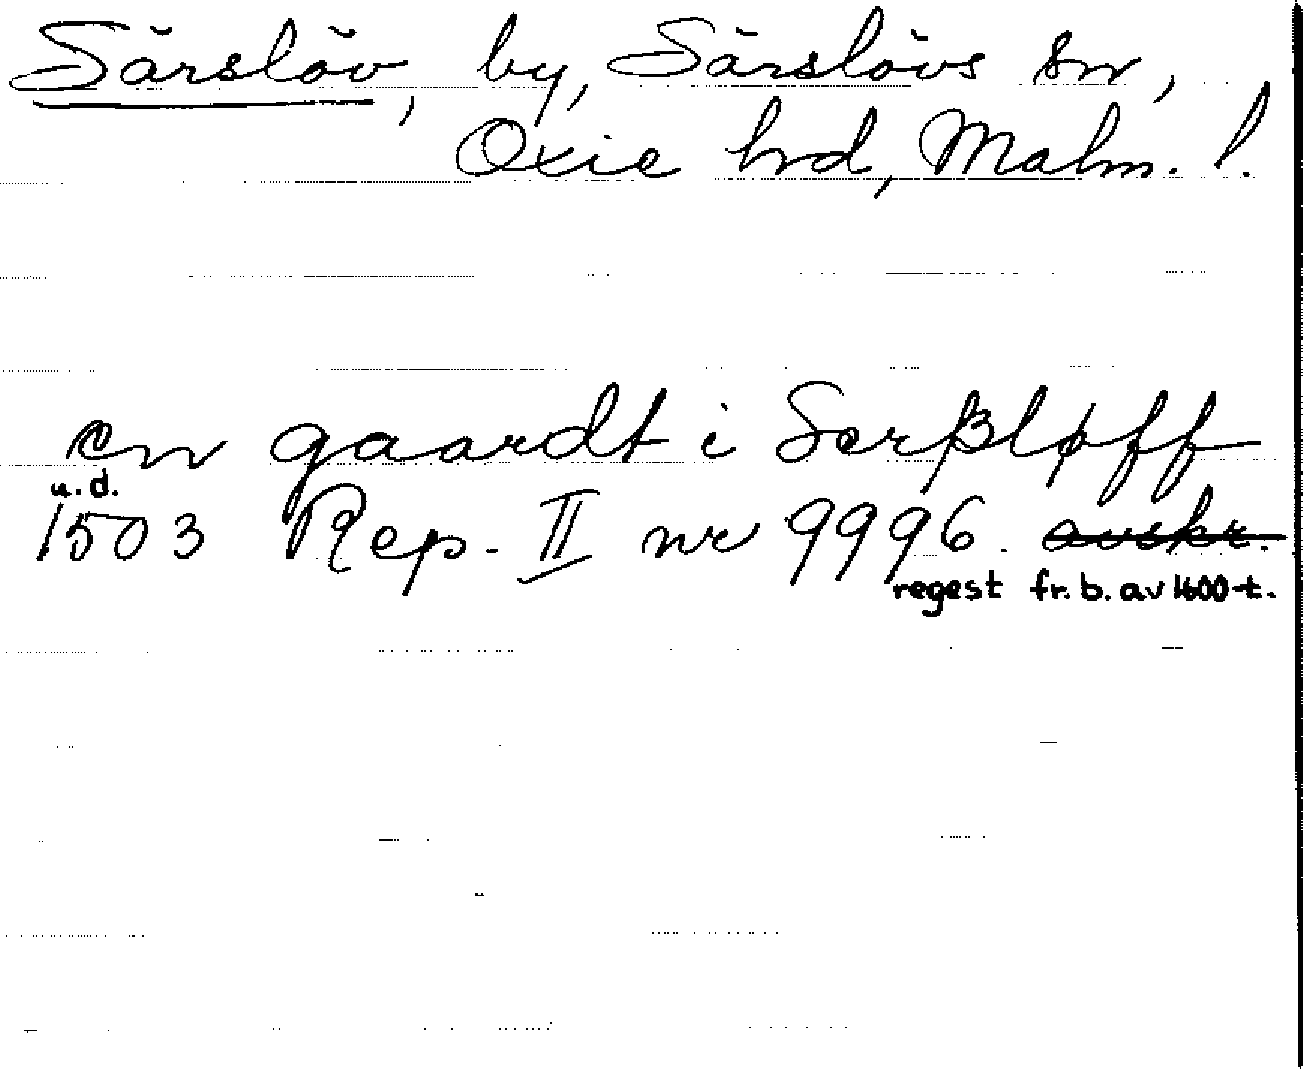 Särslöv, by, Särslövs sn,
Oxie hrd, Malm. l.
en gaardt i Serßløff
u.d.
1503 Rep. II nr 9996. avskr.
regest fr. b. av 1600-t.